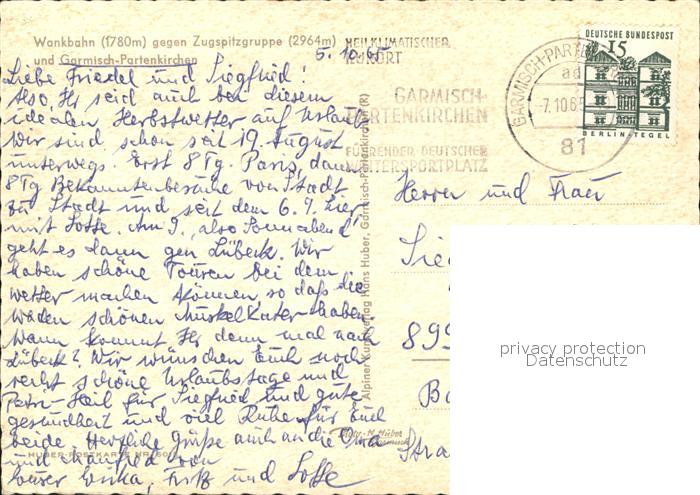 Wankbahn (1780m) gegen Zugspitzgruppe (2964m)
und Garmisch-Partenkirchen
5.10.65
Liebe Friedel und Siegfried!
Also, Ihr seid auch bei diesem
idealen Herbstwetter auf Urlaub.
Wir sind schon seit 19. August
unterwegs. Erst 8 Tg. Paris, dann
8 Tg Bekanntenbesuche von Stadt
zu Stadt und seit dem 6.9. hier
mit Lotte. Am 9., also Sonnabend
geht es dann gen Lübeck. Wir
haben schöne Touren bei dem
Wetter machen können, so daß die
Waden schönen Muskelkater haben.
Wann kommt Ihr denn mal nach
Lübeck? Wir wünschen Euch noch
recht schöne Urlaubstage und
Petri-Heil für Siegfried und gute
Gesundheit und viel Ruhe für Euch
beide. Herzliche Grüße auch an die Oma
und Manfred von
Eurer Erika, Fritz und Lotte
HUBER-POSTKARTE NR.
Alpiner Kunstverlag Hans Huber, Garmisch-Partenkirchen (R)
HEILKLIMATISCHER
KURORT
GARMISCH-
PARTENKIRCHEN
FÜHRENDER DEUTSCHER
WINTERSPORTPLATZ
GARMISCH-PARTENKIRCHEN
ad
-7.10.65
81
DEUTSCHE BUNDESPOST
15
BERLIN-TEGEL
Herrn und Frau
Sie
899
Ba
Stra
privacy protection
Datenschutz